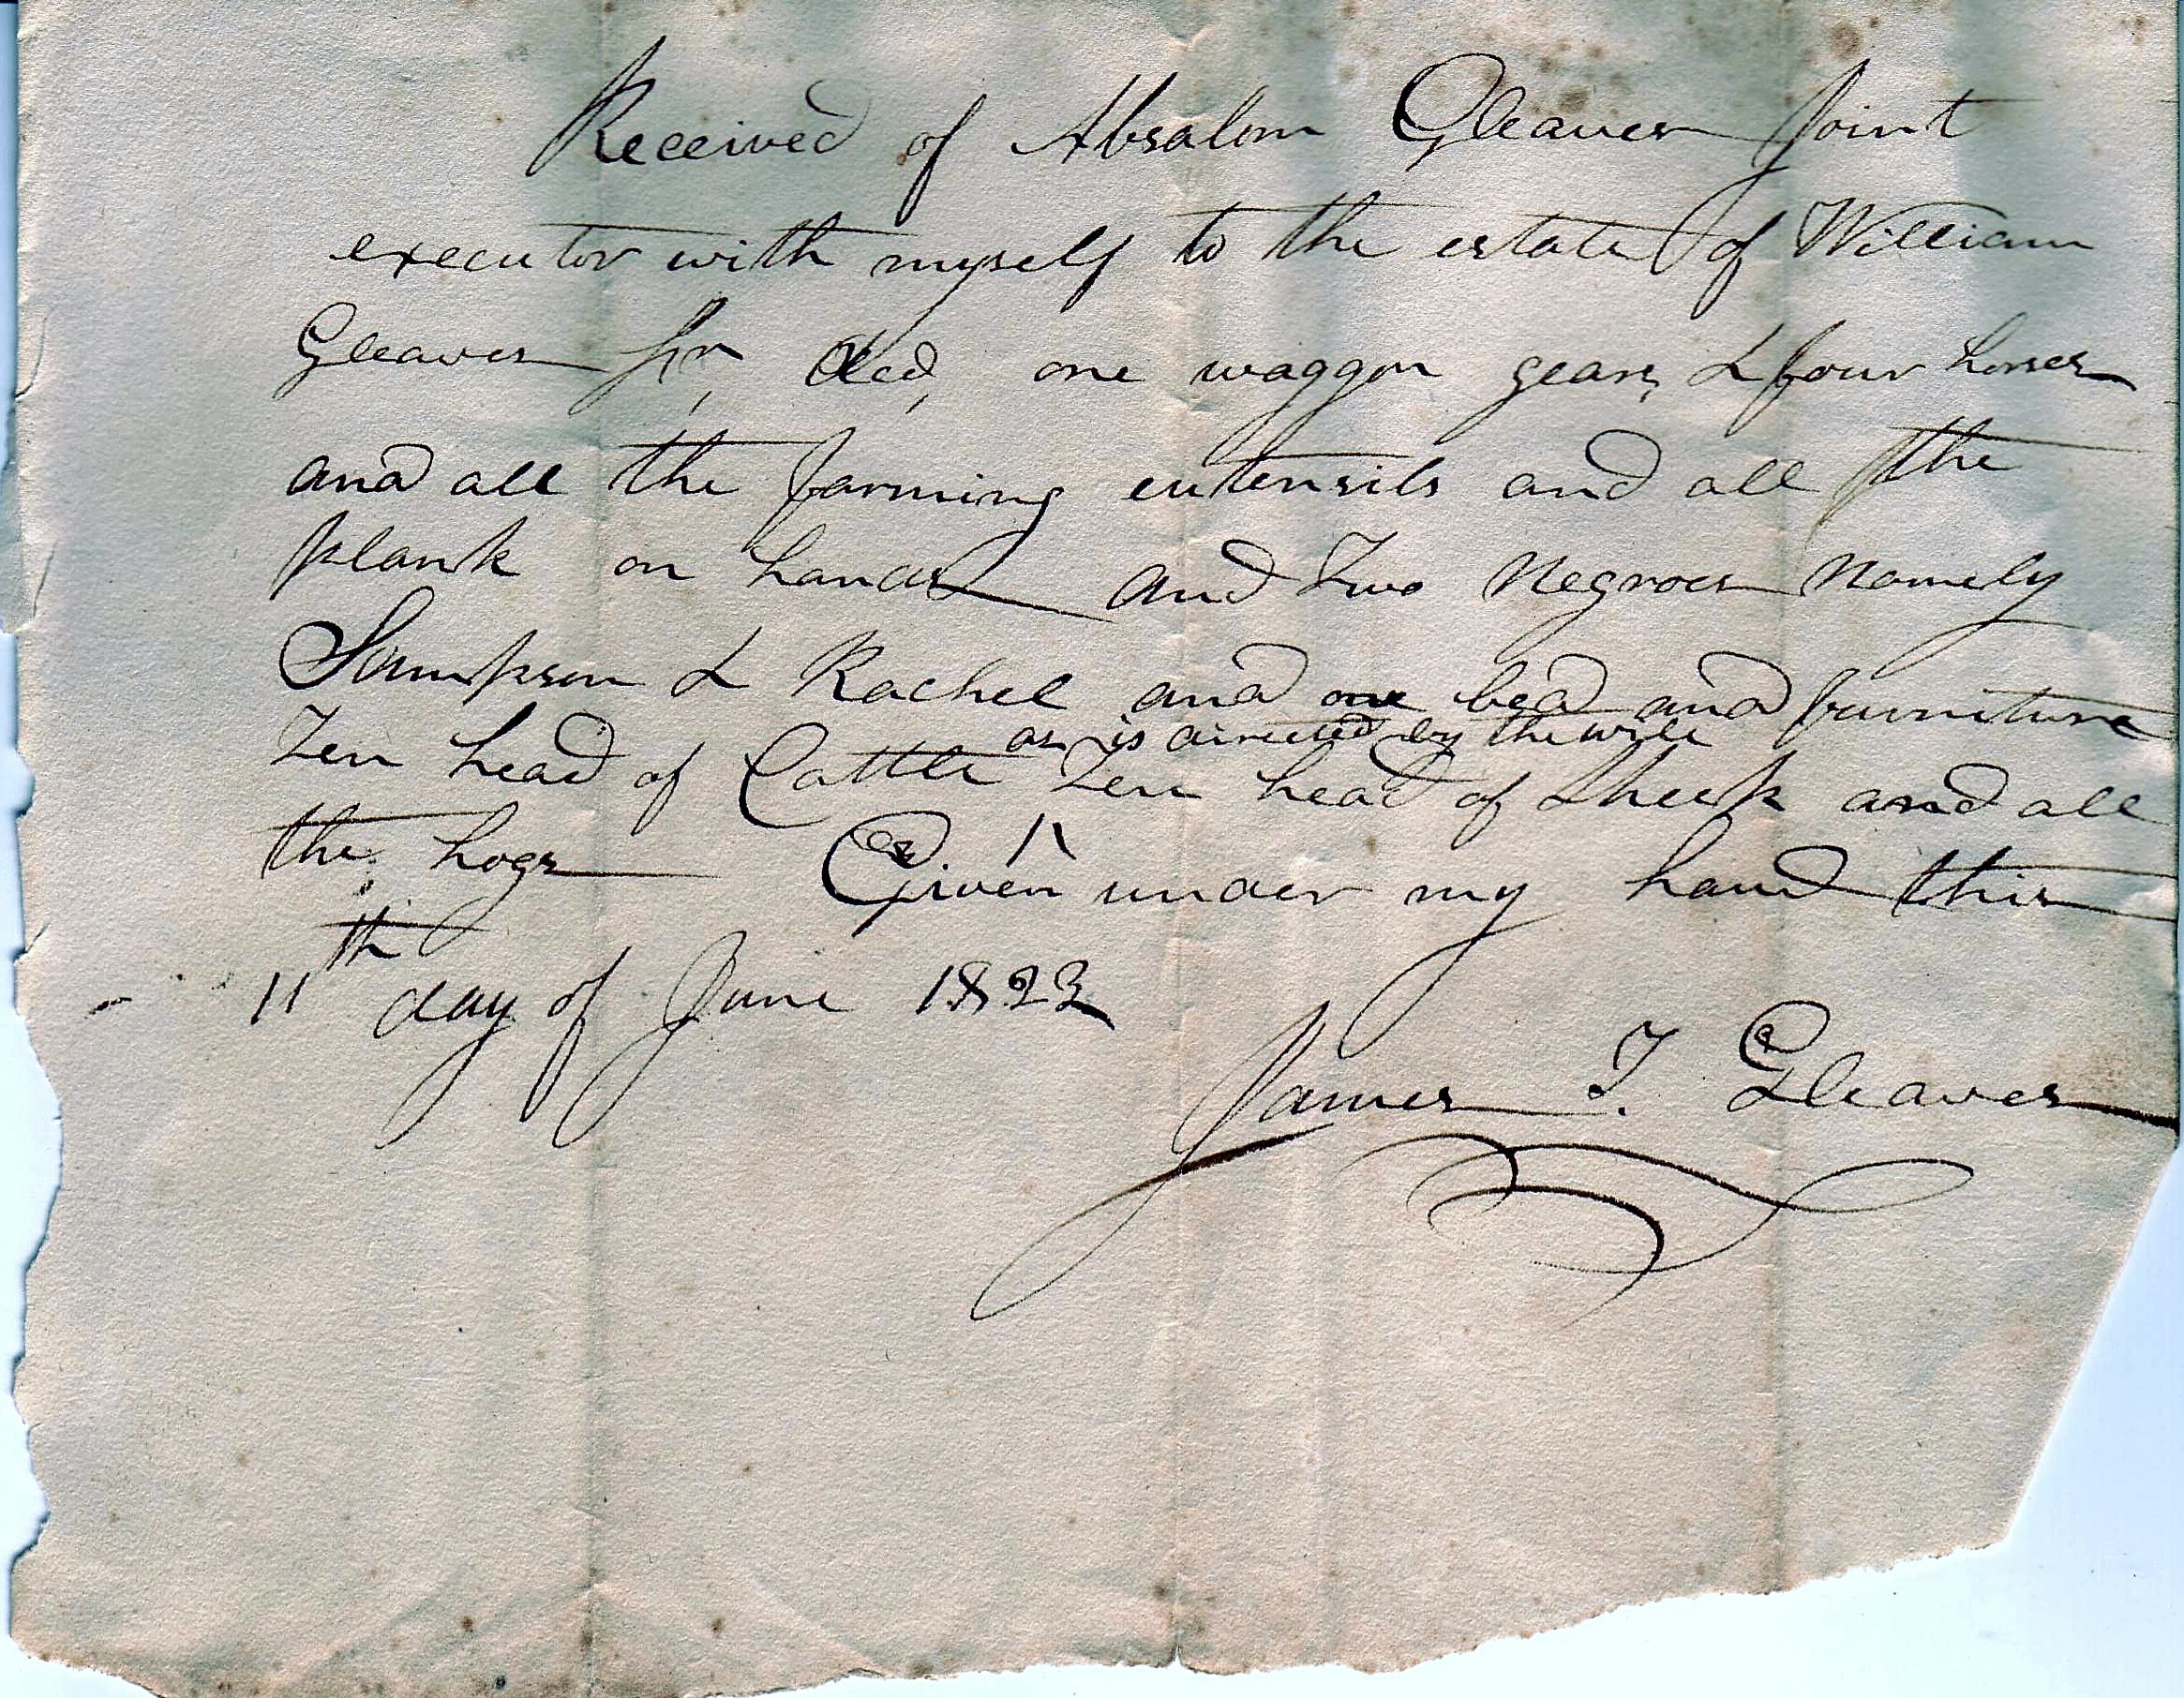 Received of Absalom Gleaves Joint
executor with myself to the estate of William
Gleaves Sr, Decd, one waggon gears, & four horses
and all the farming eutensils and all the
plank on hands and Two Negroes Namely
Sampson & Rachel and one bed and furniture
as is directed by the will
Ten head of Cattle Ten head of Sheep and all
the hogs Given under my hand this
11th day of June 1823
James T. Gleaves